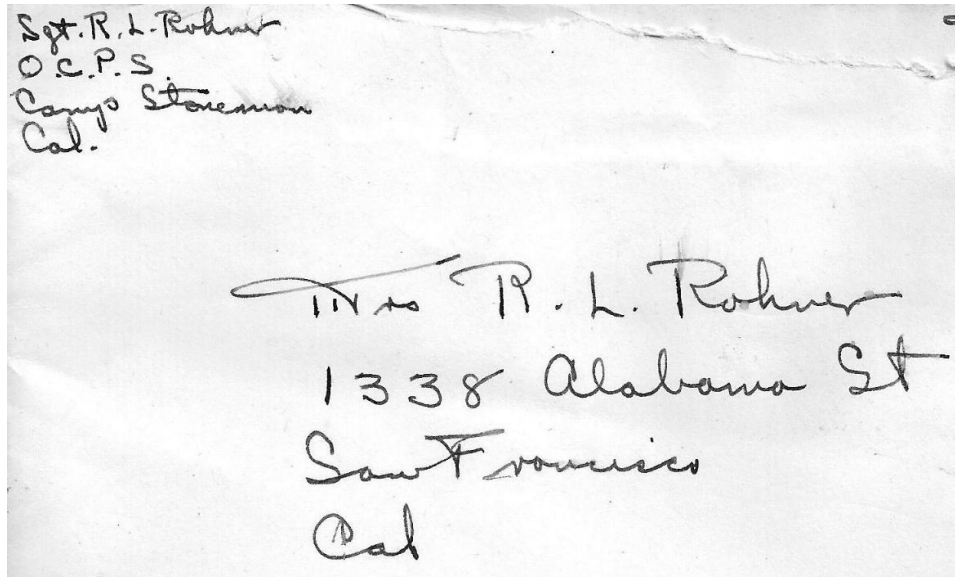 Sgt. R. L. Rohner
O.C.P.S.
Camp Stoneman
Cal.
Mrs R. L. Rohner
1338 Alabama St
San Francisco
Cal